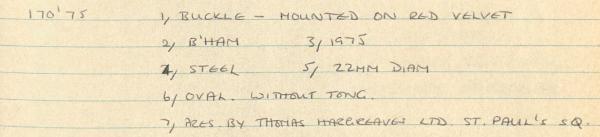 170'75 1, BUCKLE – MOUNTED ON RED VELVET
2, B'HAM 3, 1975
4, STEEL 5, 22MM DIAM
6, OVAL. WITHOUT TONG.
7, PRES. BY THOMAS HARGREAVES LTD. ST. PAUL'S SQ.